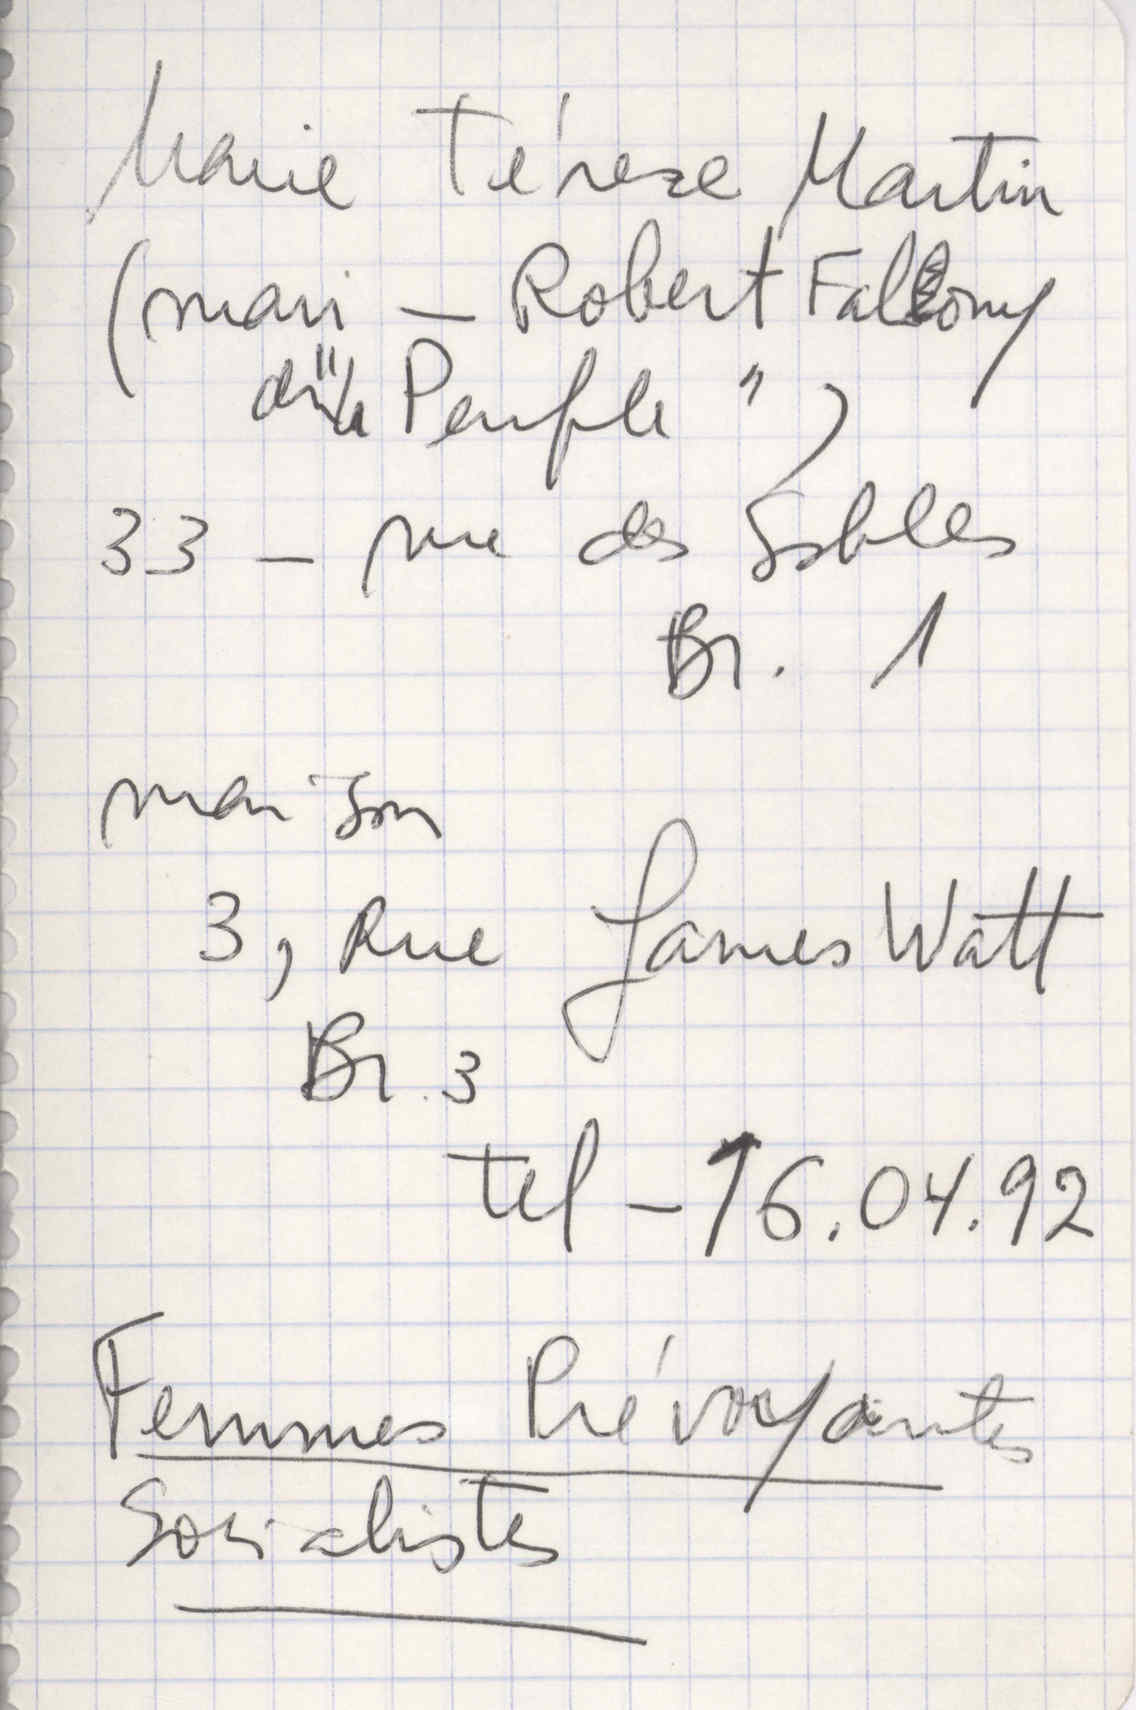 Marie Térese Martin
(mari - Robert Falony
du "Peuple")
33 - rue des Sables
Br. 1
maison
3, Rue James Watt
Br. 3
tel - 16.04.92
Femmes Prévoyantes
Socialistes